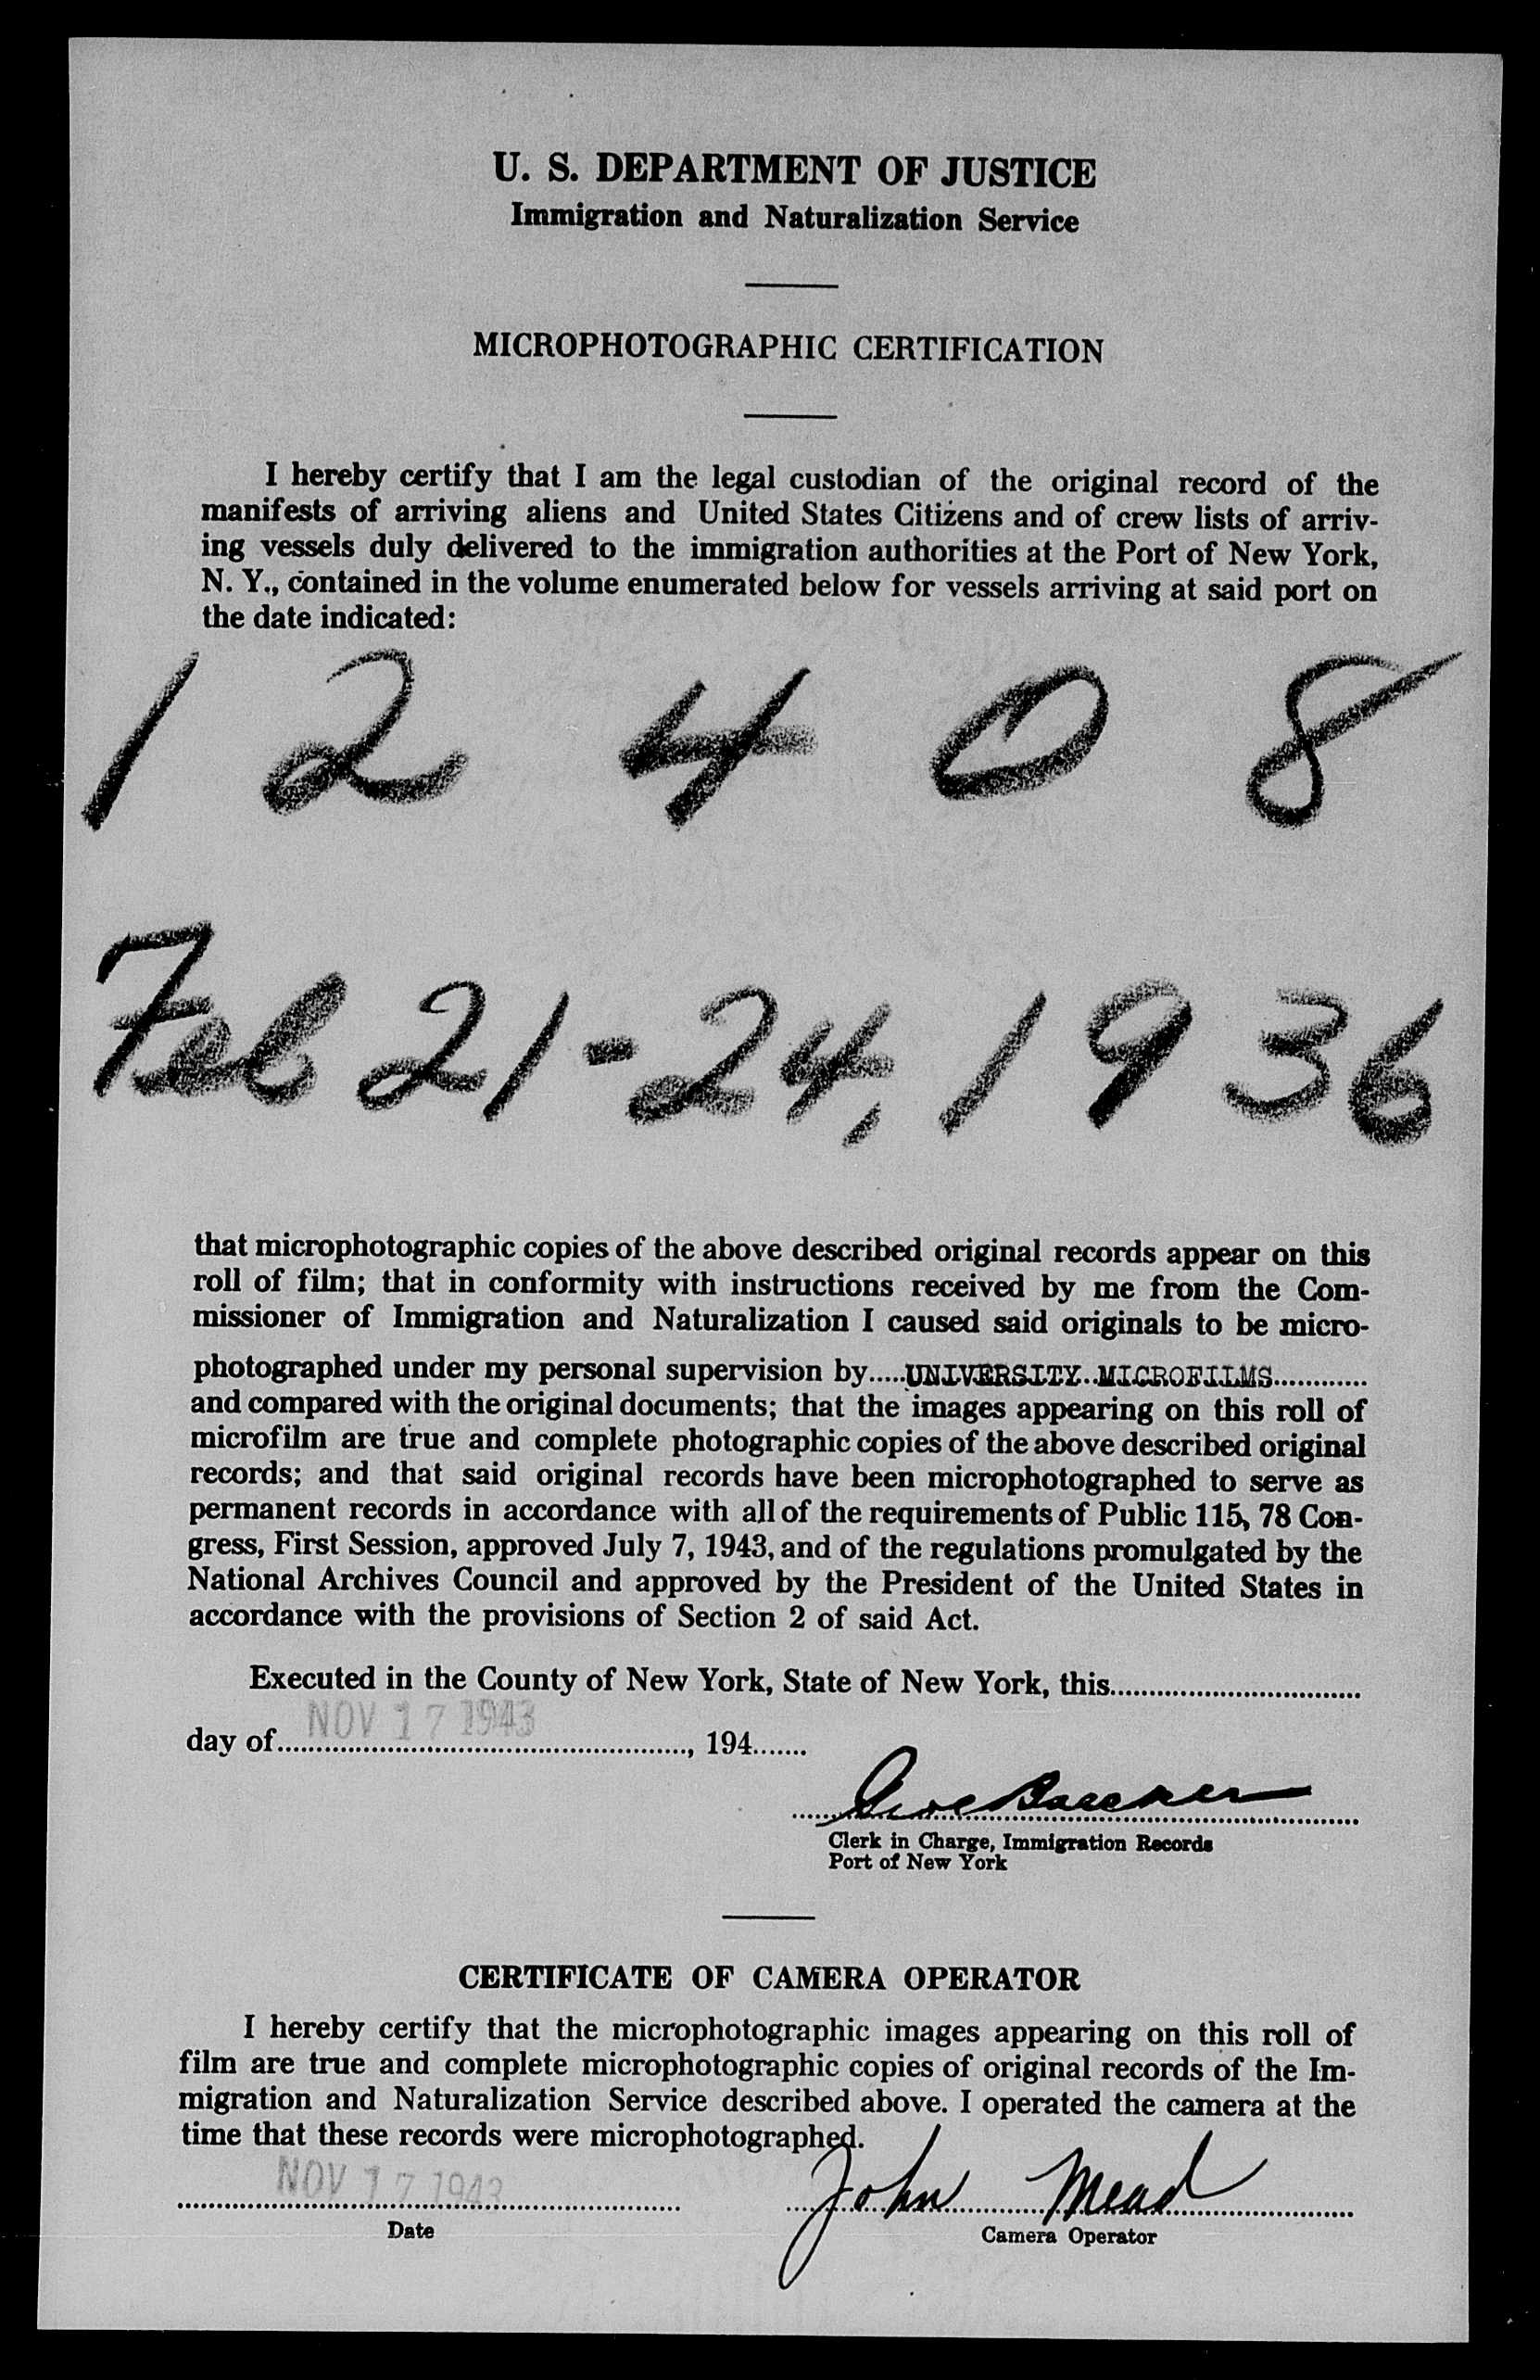 U. S. DEPARTMENT OF JUSTICE
Immigration and Naturalization Service
MICROPHOTOGRAPHIC CERTIFICATION
I hereby certify that I am the legal custodian of the original record of the
manifests of arriving aliens and United States Citizens and of crew lists of arriv-
ing vessels duly delivered to the immigration authorities at the Port of New York,
N. Y., contained in the volume enumerated below for vessels arriving at said port on
the date indicated:
1 2 4 0 8
Feb 21-24, 1936
that microphotographic copies of the above described original records appear on this
roll of film; that in conformity with instructions received by me from the Com-
missioner of Immigration and Naturalization I caused said originals to be micro-
photographed under my personal supervision by.....UNIVERSITY MICROFILMS............
and compared with the original documents; that the images appearing on this roll of
microfilm are true and complete photographic copies of the above described original
records; and that said original records have been microphotographed to serve as
permanent records in accordance with all of the requirements of Public 115, 78 Con-
gress, First Session, approved July 7, 1943, and of the regulations promulgated by the
National Archives Council and approved by the President of the United States in
accordance with the provisions of Section 2 of said Act.
Executed in the County of New York, State of New York, this................................
NOV 17 1943
day of....................................................., 194.......
Clerk in Charge, Immigration Records
Port of New York
CERTIFICATE OF CAMERA OPERATOR
I hereby certify that the microphotographic images appearing on this roll of
film are true and complete microphotographic copies of original records of the Im-
migration and Naturalization Service described above. I operated the camera at the
time that these records were microphotographed.
NOV 17 1943 John Mead
Date Camera Operator